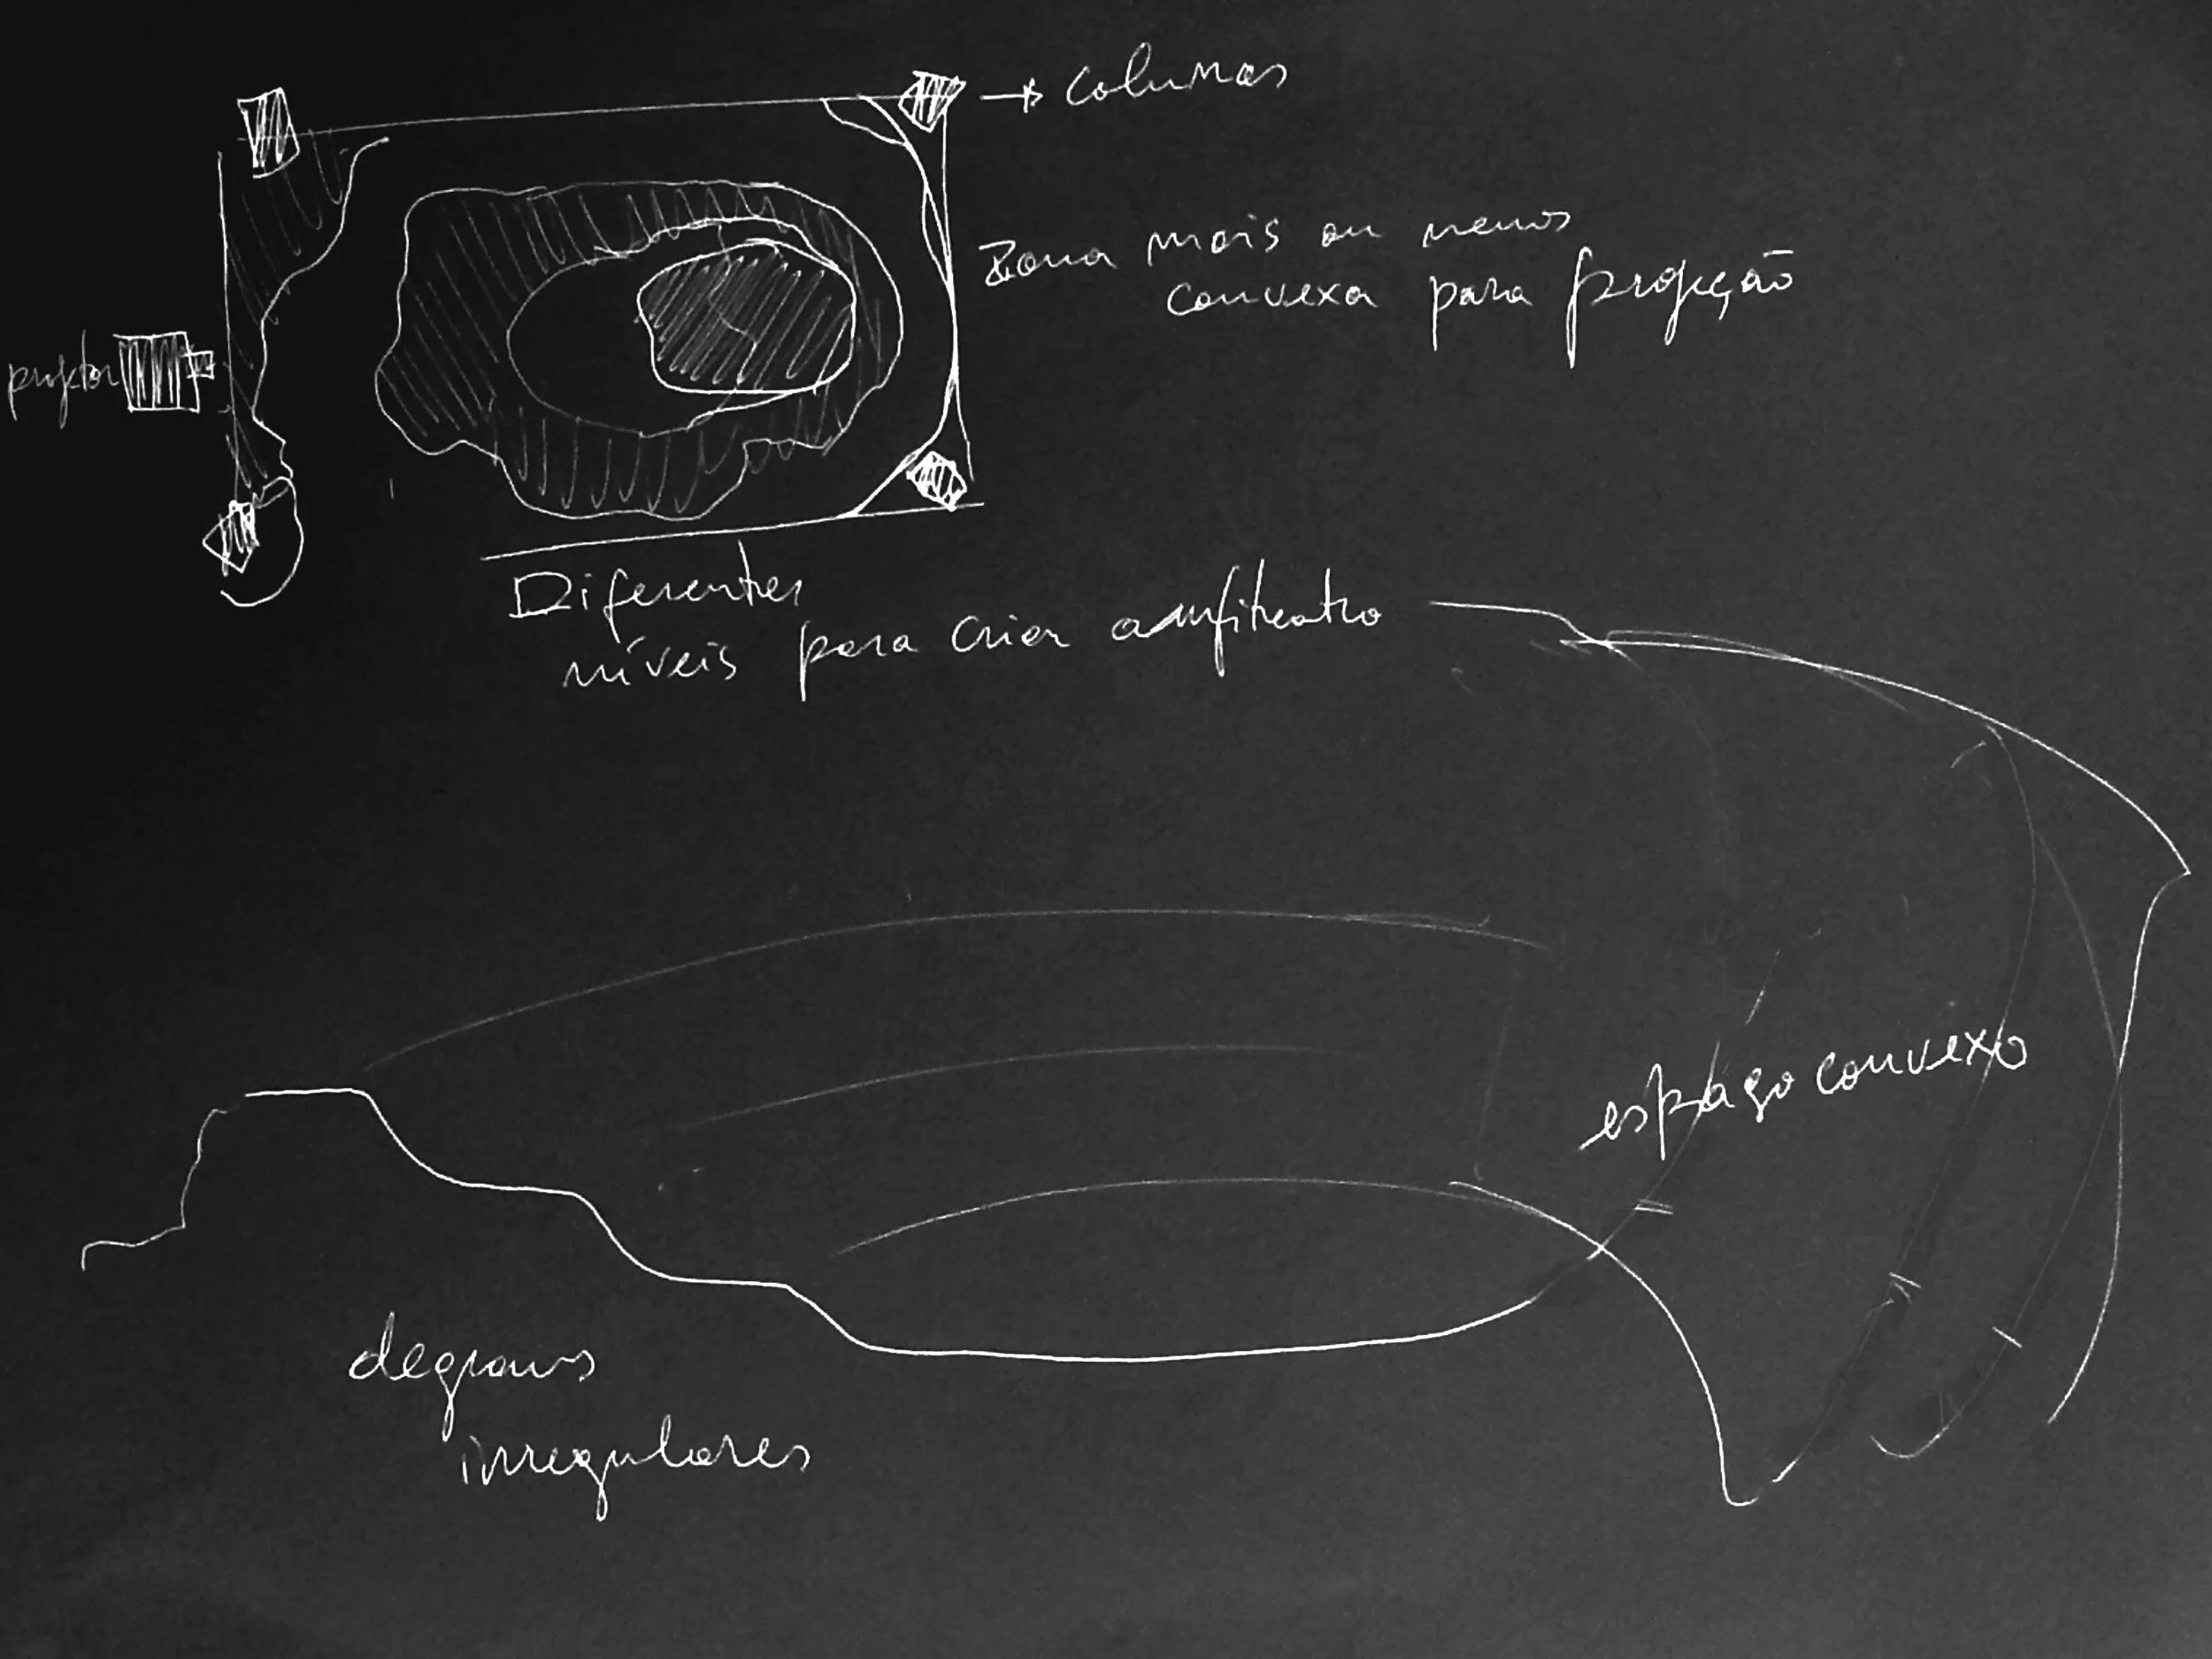 → colunas
Zona mais ou menos
convexa para projeção
projetor
Diferentes
níveis para criar anfiteatro
espaço convexo
degraus
irregulares